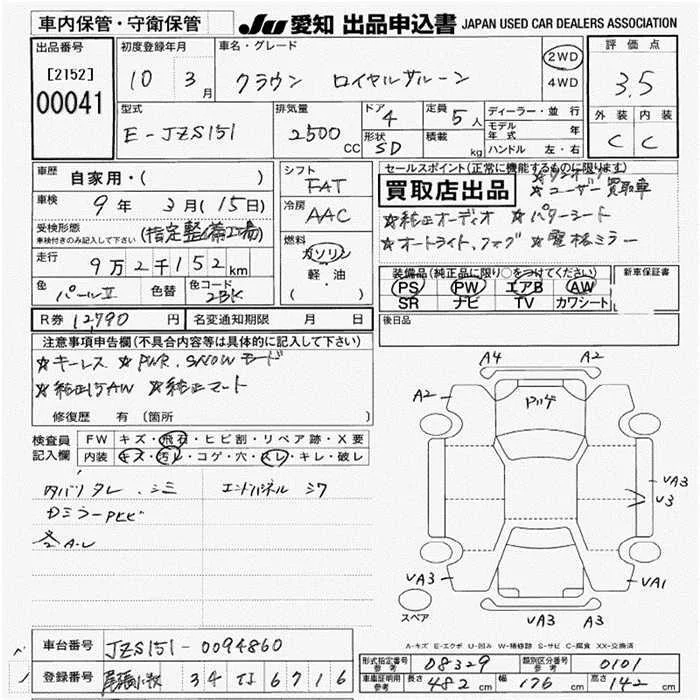 車内保管・守衛保管 JU 愛知 出品申込書 JAPAN USED CAR DEALERS ASSOCIATION
出品番号 [2152] 00041
初度登録年月 10 3月
車名・グレード クラウン ロイヤルサルーン
2WD
4WD
評価点 3.5
外装 内装
C C
型式 E-JZS151
排気量 2500 CC
ドア 4
定員 5人
形状 SD
積載 kg
ディーラー・並行
モデル年式 年
ハンドル 左・右
車歴 自家用・( )
車検 9年 3月(15日)
受検形態 (指定整備工場)
車検付きのみ記入して下さい
走行 9万2千152km
色 パールⅡ 色替 色コード 2BK
シフト FAT
冷房 AAC
燃料 ガソリン
軽・油
( )
セールスポイント(正常に機能するものに限ります)
買取店出品 ☆ユーザー買取車
☆純正オーディオ ☆パワーシート
☆オートライト、フォグ ☆電格ミラー
装備品(純正品に限り○をつけてください) 新車保証書
PS PW エアB AW
SR ナビ TV カワシート
R券 12,790円 名変通知期限 月 日
後日品
注意事項申告欄(不具合内容等は具体的に記入して下さい)
☆キーレス ☆PWR、SNOWモード
☆純正15AW ☆純正マート
修復歴 有(箇所
検査員記入欄
FW キズ・飛石・ヒビ割・リペア跡・X要
内装 キズ・汚レ・コゲ・穴・スレ・キレ・破レ
タバリ タレ、シミ エンドパネル シワ
DミラーPヒビ
A-L
A4 A2
A2
VA3
U3
VA3 VA1
VA3 A3
スペア
A-キズ E-エクボ U-凹み W-補修跡 S-サビ C-腐食 XX-交換済
車台番号 JZS151-0094860
登録番号 尾張小牧 34 6716
形式指定番号 参考 08329 類別区分番号 参考 0101
車庫証明用 参考 長さ 482cm 幅 176cm 高さ 142cm